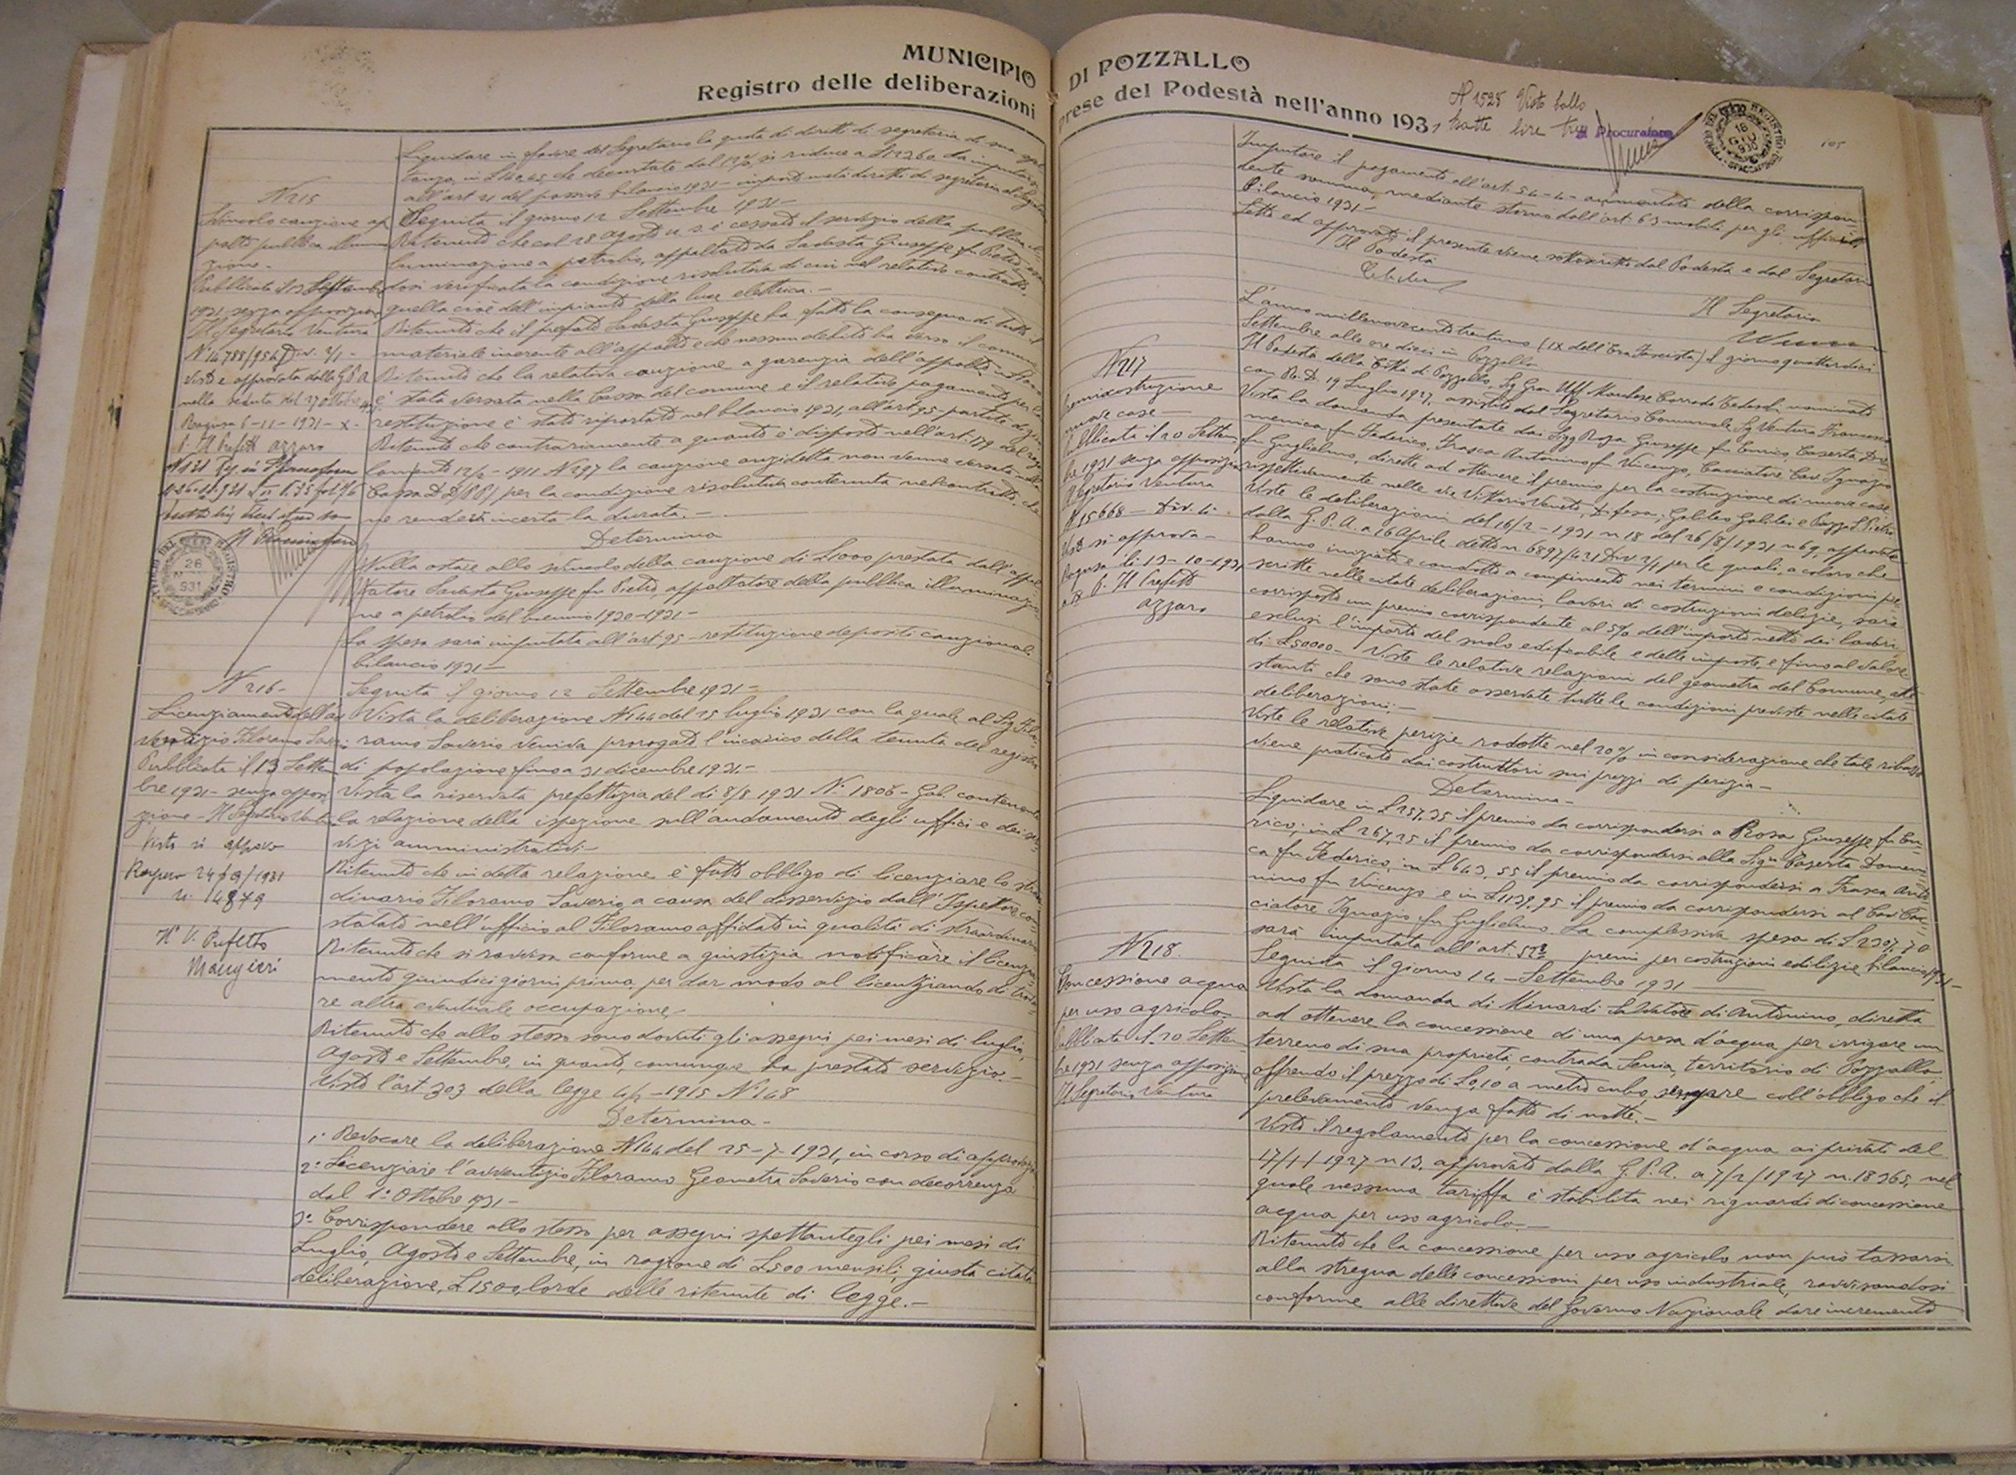 MUNICIPIO DI POZZALLO
Registro delle deliberazioni prese del Podestà nell'anno 193
Liquidare in favore del Segretario la quota di diritti di segreteria di sua
all'art 21 del passivo bilancio 1931
N 215
Svincolo cauzione ap
palto pubblica illumina
zione.
Pubblicata il 13 Settembre
1931 senza opposizione
Il Segretario Ventura
N 14785/9567 Div. 2/1 -
Visto e approvato dalla G.P.A
nella seduta del 27 Ottobre
Ragusa 6-11-1931-X-
p. Il Prefetto Azzaro
26
931
Seguita il giorno 12 Settembre 1931-
Ritenuto che col 28 Agosto u.s. è cessato il servizio della pubblica il
luminazione a petrolio, appaltato da Susta Giuseppe fu Pietro, essen
dosi verificata la condizione risolutiva di cui nel relativo contratto,
quella cioè dell'impianto della luce elettrica.-
Ritenuto che il prefato Giuseppe ha fatto la consegna di tutto il
materiale inerente all'appalto e che nessun debito ha verso il comune
Ritenuto che la relativa cauzione a garanzia dell'appalto
è stata versata nella Cassa del comune e il relativo pagamento per la
restituzione è stato riportato nel bilancio 1931, all'art 95- partite di giro
Ritenuto che contrariamente a quanto è disposto nell'art. 179 del rego
lamento 12/2-1911 N 297 la cauzione anzidetta non venne versata nella
Cassa DD.PP. per la condizione risolutiva contenuta nel contratto, che
ne rendeva incerta la durata.-
Determina
Nulla ostare allo svincolo della cauzione di L 1000 prestata dall'appal
tatore Giuseppe fu Pietro appaltatore della pubblica illuminazio
ne a petrolio del biennio 1930-1931-
La spesa sarà imputata all'art 95- restituzione depositi cauzionali
bilancio 1931-
N 216-
Licenziamento dell'av
ventizio Filoramo Save
Pubblicata il 13 Settem
bre 1931- senza opposi
zione- Il Segretario Ventura
Visto si approva
Ragusa 24/9/1931
N. 14879
Il V. Prefetto
Mangieri
Seguita il giorno 12 Settembre 1931-
Vista la deliberazione N 144 del 25 luglio 1931 con la quale al Sig. Filo
ramo Saverio veniva prorogato l'incarico della tenuta del registro
di popolazione fino a 31 dicembre 1931.-
Vista la riservata prefettizia del dì 8/8 1931 N. 1806- Gab. contenente
la relazione della ispezione sull'andamento degli uffici e dei ser
vizi amministrativi-
Ritenuto che in detta relazione è fatto obbligo di licenziare lo straor
dinario Filoramo Saverio a causa del disservizio dall'Ispettore con
statato nell'ufficio al Filoramo affidato in qualità di straordinario
Ritenuto che si ravvisa conforme a giustizia notificare il licenzia
mento quindici giorni prima, per dar modo al licenziando di trova
re altra eventuale occupazione-
Ritenuto che allo stesso sono dovuti gli assegni pei mesi di luglio,
Agosto e Settembre, in quanto, comunque ha prestato servizio.-
Visto l'art 303 della legge 4/2-1915 N 148
Determina-
1° Revocare la deliberazione N 144 del 25-7-1931, in corso di approvazio
2° Licenziare l'avventizio Filoramo Geometra Saverio con decorrenza
dal 1° Ottobre 1931-
3° Corrispondere allo stesso per assegni spettantegli pei mesi di
Luglio, Agosto e Settembre, in ragione di L 500 mensili, giusta citata
deliberazione, L 1500, lorde delle ritenute di legge.-
N 1525 Visto bollo
Il Procuratore
105
Imputare il pagamento all'art. 54-4- aumentato della corrispon
dente somma, mediante storno dall'art. 63 mobili per gli uffici
Bilancio 1931-
Letto ed approvato il presente viene sottoscritto dal Podestà e dal Segretario
Il Podestà
Il Segretario
L'anno millenovecentotrentuno (IX dell'Era Fascista) il giorno quattordici
Settembre alle ore dieci in Pozzallo
Il Podestà della Città di Pozzallo, Sig Gr. Uff. Corrado Tedeschi nominato
con R. D. 19 Luglio 1927, assistito dal Segretario Comunale Sig Ventura Francesco
N 217
costruzione
nuove case-
Pubblicata il 20 Settem
bre 1931 senza opposizione
Il Segretario Ventura
N 15668- Div. 4.
Visto si approva-
Ragusa lì 13-10-1931
p. Il Prefetto
Azzaro
Vista la domanda presentata dai Sigg Rosa Giuseppe fu Enrico, Caserta Do
menica fu Federico, Frasca Antonino fu Vincenzo, Cacciatore Cav. Ignazio
fu Guglielmo, dirette ad ottenere il premio per la costruzione di nuove case
rispettivamente nelle vie Vittorio Veneto, Difesa, Galileo Galilei e Piazza S. Pietro
Viste le deliberazioni del 16/2-1931 n 18 del 26/8/1931 n 69, approvate
dalla G. P. A. a 16 Aprile detto n 6897/431 Div 2/1 per le quali, a coloro che
hanno iniziato e condotto a compimento nei termini e condizioni pre
scritte nelle citate deliberazioni, lavori di costruzioni edilizie, sarà
corrisposto un premio corrispondente al 5% dell'importo netto dei lavori
esclusi l'importo del suolo edificabile e delle imposte, e fino al valore
di L 50000- Viste le relative relazioni del geometra del Comune, atte
stanti che sono state osservate tutte le condizioni previste nelle citate
deliberazioni.-
Viste le relative perizie ridotte nel 20% in considerazione che tale ribasso
viene praticato dai costruttori sui prezzi di perizia-
Determina-
Liquidare in L 257,35 il premio da corrispondersi a Rosa Giuseppe fu En
rico; in L 267,25 il premio da corrispondersi alla Sig.ra Caserta Domeni
ca fu Federico, in L 643,55 il premio da corrispondersi a Frasca Anto
nino fu Vincenzo e in L 1139,95 il premio da corrispondersi al Cav. Cac
ciatore Ignazio fu Guglielmo. La complessiva spesa di L 2307,70
sarà imputata all'art. 52 premi per costruzioni edilizie, bilancio 1931-
N 218.
Concessione acqua
per uso agricolo-
Pubblicata il 20 Settem
bre 1931 senza opposizione
Il Segretario Ventura
Seguita il giorno 14- Settembre 1931
Vista la domanda di Minardi Salvatore di Antonino, diretta
ad ottenere la concessione di una presa d'acqua per irrigare un
terreno di sua proprietà, contrada Senia, territorio di Pozzallo,
offrendo il prezzo di L 0,10 a metro cubo, sempre coll'obbligo che il
prelevamento venga fatto di notte.-
Visto il regolamento per la concessione d'acqua ai privati del
17/1/1927 n 13, approvato dalla G. P. A. a 7/2/1927 n. 18365, nel
quale nessuna tariffa è stabilita nei riguardi di concessione
acqua per uso agricolo.-
Ritenuto che la concessione per uso agricolo non può tassarsi
alla stregua delle concessioni per uso industriale, ravvisandosi
conforme alle direttive del Governo Nazionale dare incremento